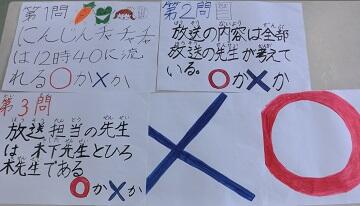 第1問
にんじんチャチャチャ
は12時40に流
れる○か×か
第2問
放送の内容は全部
放送の先生が考えて
いる。○か×か
第3問
放送担当の先生
は木下先生とひろ
木先生である
○か×か